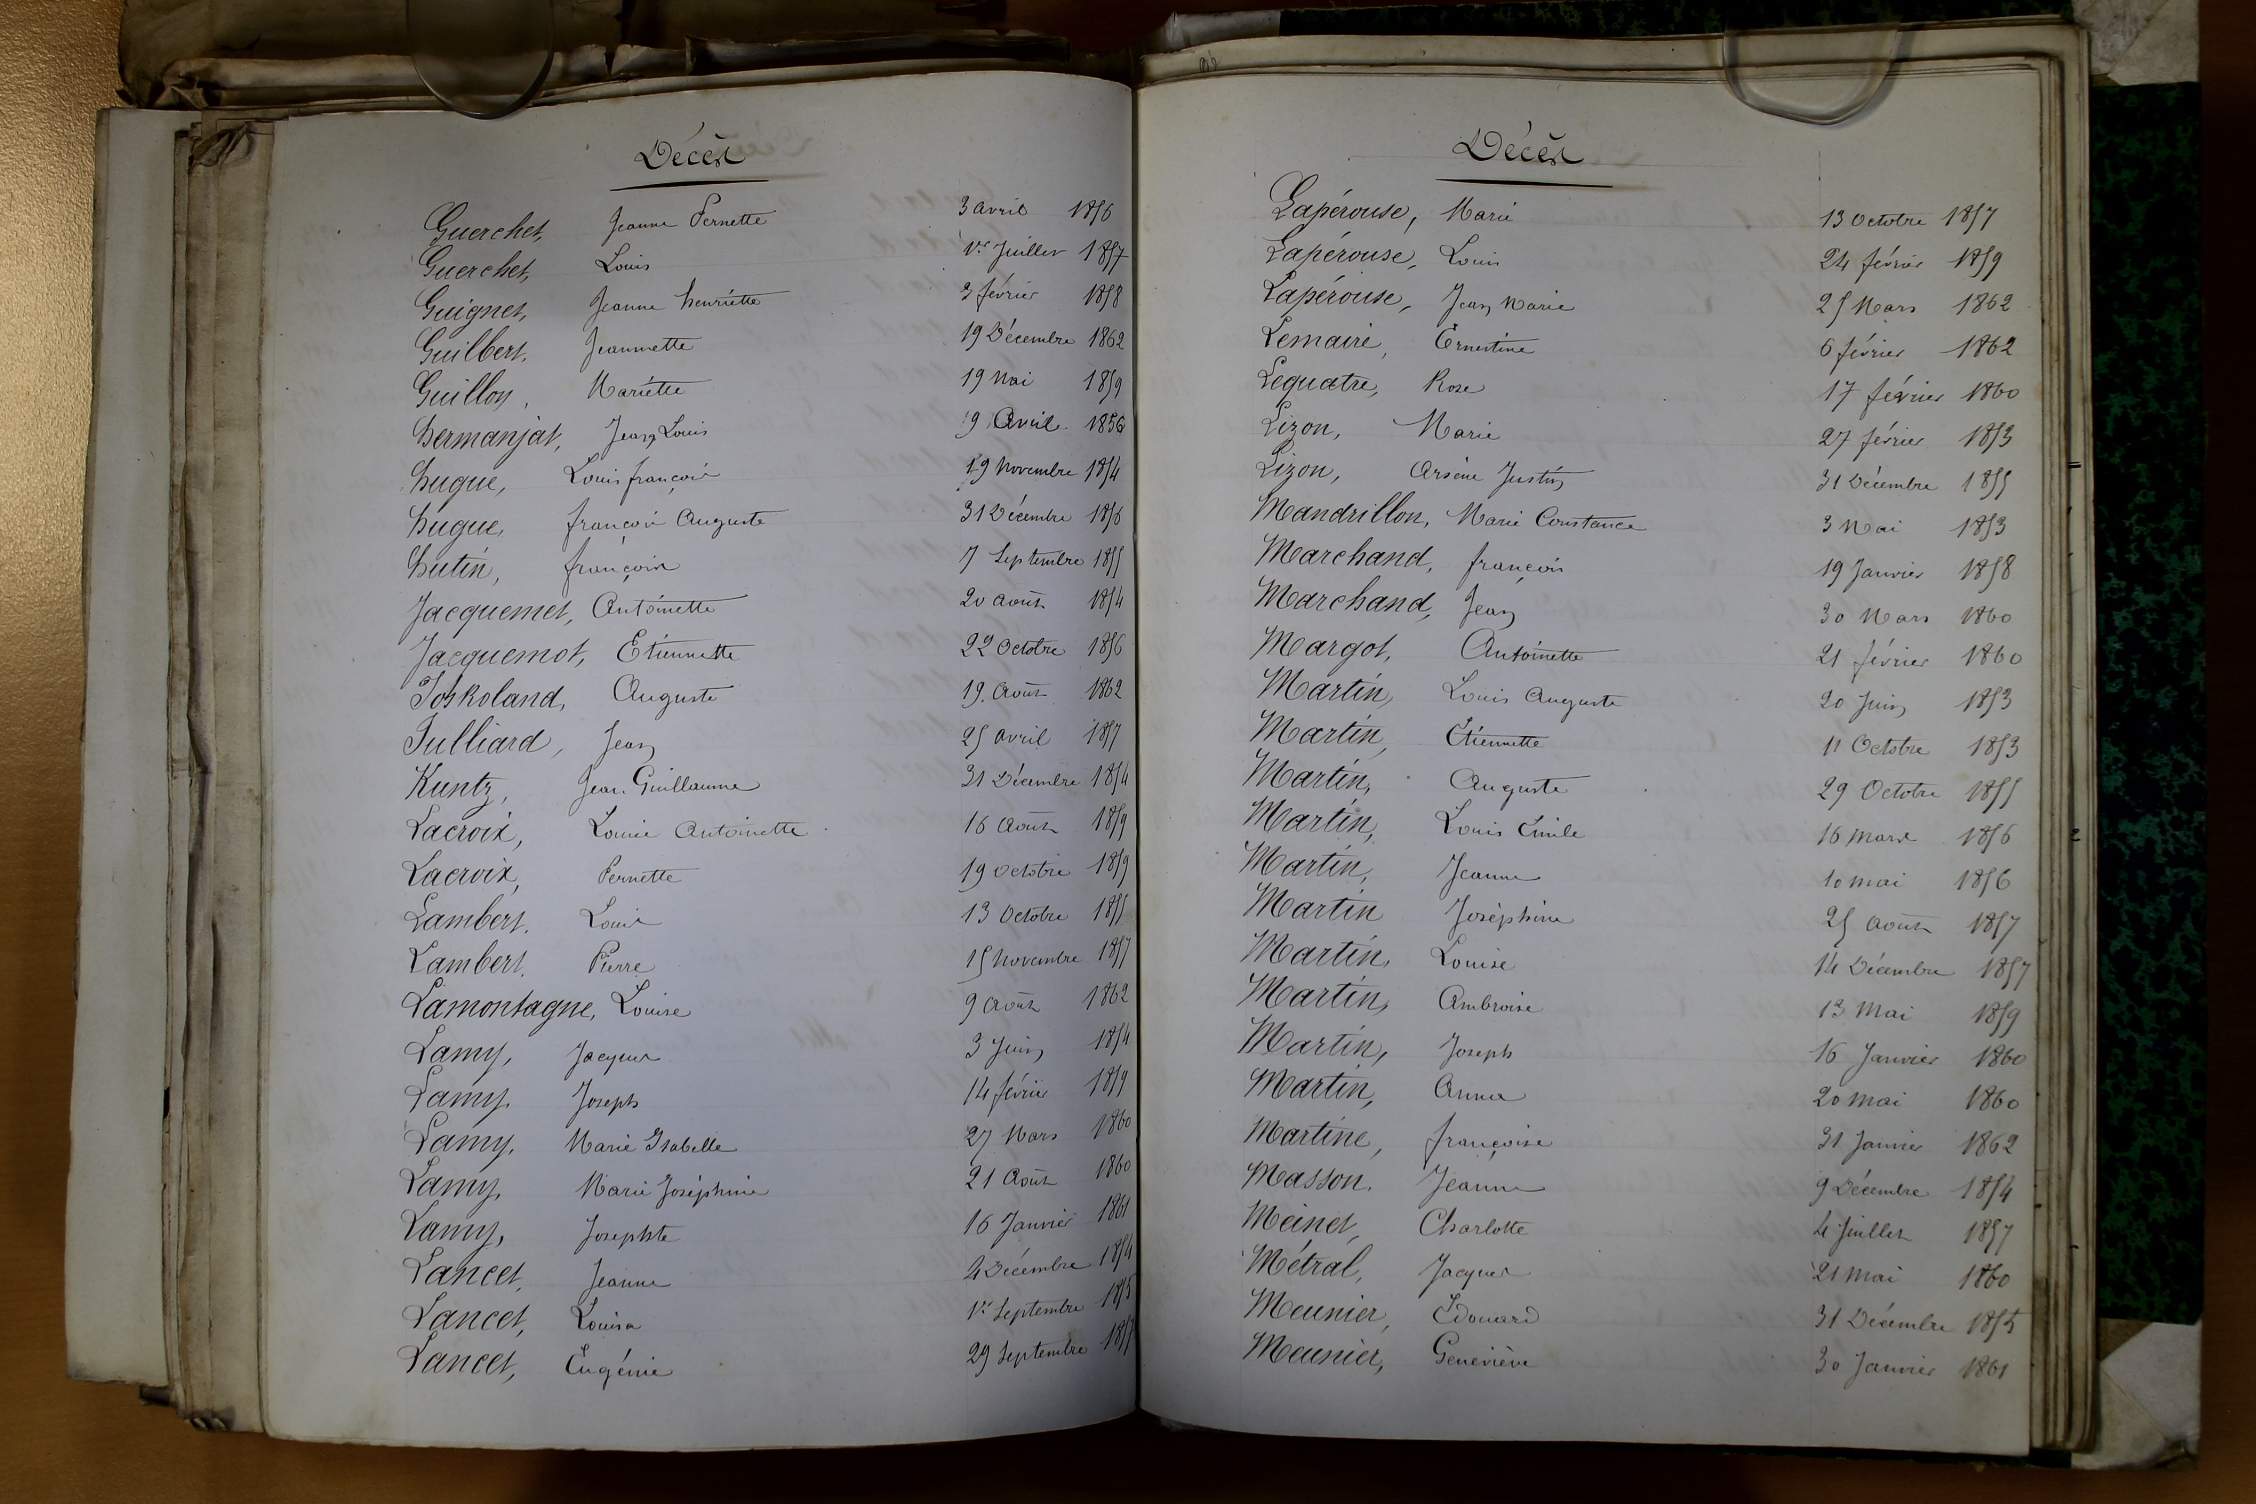 Décès
Guerchet, Jeanne Pernette 3 avril 1856
Guerchet, Louis 1er Juillet 1857
Guignet, Jeanne henriette 3 février 1858
Guilbert, Jeannette 19 Décembre 1862
Guillon, Mariette 19 Mai 1859
hermanjat, Jean Louis 9 Avril 1856
hugue, Louis françois 19 Novembre 1854
hugue, françois Auguste 31 Décembre 1856
hutin, françois 7 Septembre 1855
Jacquemet, Antoinette 20 août 1854
Jacquemot, Etiennette 22 Octobre 1856
Joskoland, Auguste 19 Août 1862
Julliard, Jean 25 avril 1857
Kuntz, Jean Guillaume 31 Décembre 1854
Lacroix, Louise Antoinette 16 Août 1859
Lacroix, Pernette 19 octobre 1859
Lambert, Louis 13 Octobre 1855
Lambert, Pierre 15 Novembre 1857
Lamontagne, Louise 9 août 1862
Lamy, Jacques 3 Juin 1854
Lamy, Joseph 14 février 1859
Lamy, Marie Isabelle 27 Mars 1860
Lamy, Marie Joséphine 21 Août 1860
Lamy, Josephte 16 Janvier 1861
Lancet, Jeanne 4 Décembre 1854
Lancet, Louisa 1er Septembre 1855
Lancet, Eugénie 29 Septembre 1857
Décès
Lapérouse, Marie 13 Octobre 1857
Lapérouse, Louis 24 février 1859
Lapérouse, Jean Marie 25 Mars 1862
Lemaire, Ernestine 6 février 1862
Lequatre, Rose 17 février 1860
Lizon, Marie 27 février 1853
Lizon, Arsène Justin 31 Décembre 1855
Mandrillon, Marie Constance 3 Mai 1853
Marchand, françois 19 Janvier 1858
Marchand, Jean 30 Mars 1860
Margot, Antoinette 21 février 1860
Martin, Louis Auguste 20 Juin 1853
Martin, Etiennette 11 Octobre 1853
Martin, Auguste 29 Octobre 1855
Martin, Louis Emile 16 Mars 1856
Martin, Jeanne 10 mai 1856
Martin Joséphine 25 août 1857
Martin, Louise 14 Décembre 1857
Martin, Ambroise 13 Mai 1859
Martin, Joseph 16 Janvier 1860
Martin, Anna 20 mai 1860
Martine, françoise 31 Janvier 1862
Masson, Jeanne 9 Décembre 1854
Meinet, Charlotte 4 Juillet 1857
Métral, Jacques 21 Mai 1860
Meunier, Edouard 31 Décembre 1855
Meunier, Geneviève 30 Janvier 1861